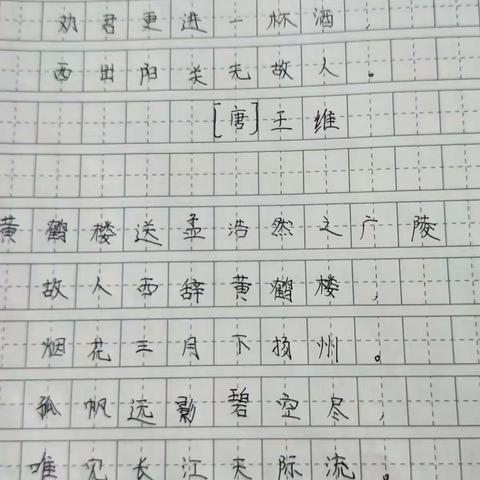 劝君更进一杯酒,
西出阳关无故人。
[唐]王维
黄鹤楼送孟浩然之广陵
故人西辞黄鹤楼,
烟花三月下扬州。
孤帆远影碧空尽,
唯见长江天际流。